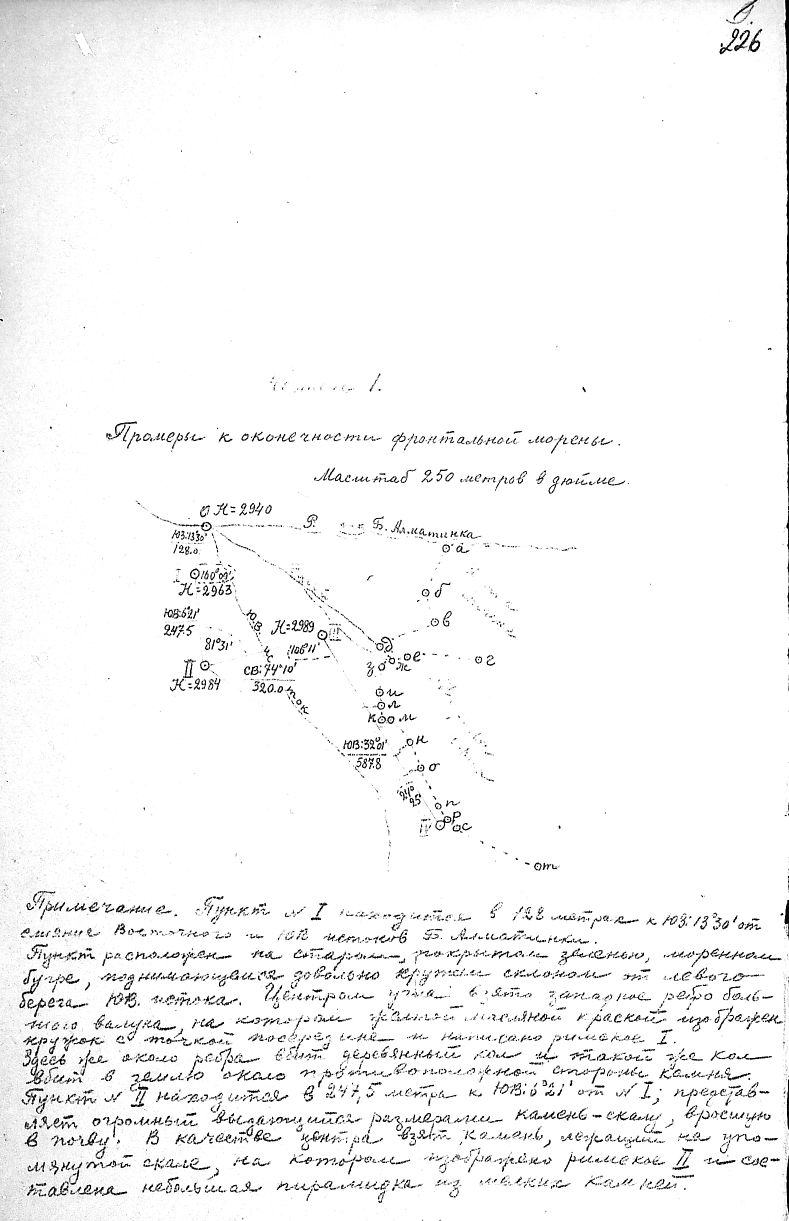 226
1.
Промеры к оконечности фронтальной морены.
Масштаб 250 метров в дюйме.
H=2940
Р. Б. Алматинка
ЮЗ:13°30'
128.0
а
I 100°09'
H=2963
б
ЮВ:6°21'
247.5
ЮВ
H=2989
III
в
81°31'
106°11'
д
е
з
ж
г
II
СВ:74°10'
H=2984
320.0
ток
и
л
к м
ЮВ:32°01'
н
587.8
о
24°
25'
п
р
IV
с
т
Примечание. Пункт N I находится в 128 метрах к ЮЗ:13°30' от
слияние Восточного и ЮВ истоков Б. Алматинки.
Пункт расположен на старом, покрытом зеленью, моренном
бугре, поднимающемся довольно крутым склоном от левого
берега ЮВ. истока. Центром взято западное ребро боль-
шого валуна, на котором желтой масляной краской изображен
кружок с точкой посередине и написано римское I.
Здесь же около ребра вбит деревянный кол и такой же кол
вбит в землю около противоположной стороны камня.
Пункт N II находится в 247,5 метра к ЮВ:6°21' от N I; представ-
ляет огромный выдающийся размерами камень-скалу, вросшую
в почву. В качестве центра взят камень, лежащий на упо-
мянутой скале, на котором изображено римское II и сос-
тавлена небольшая пирамидка из мелких камней.